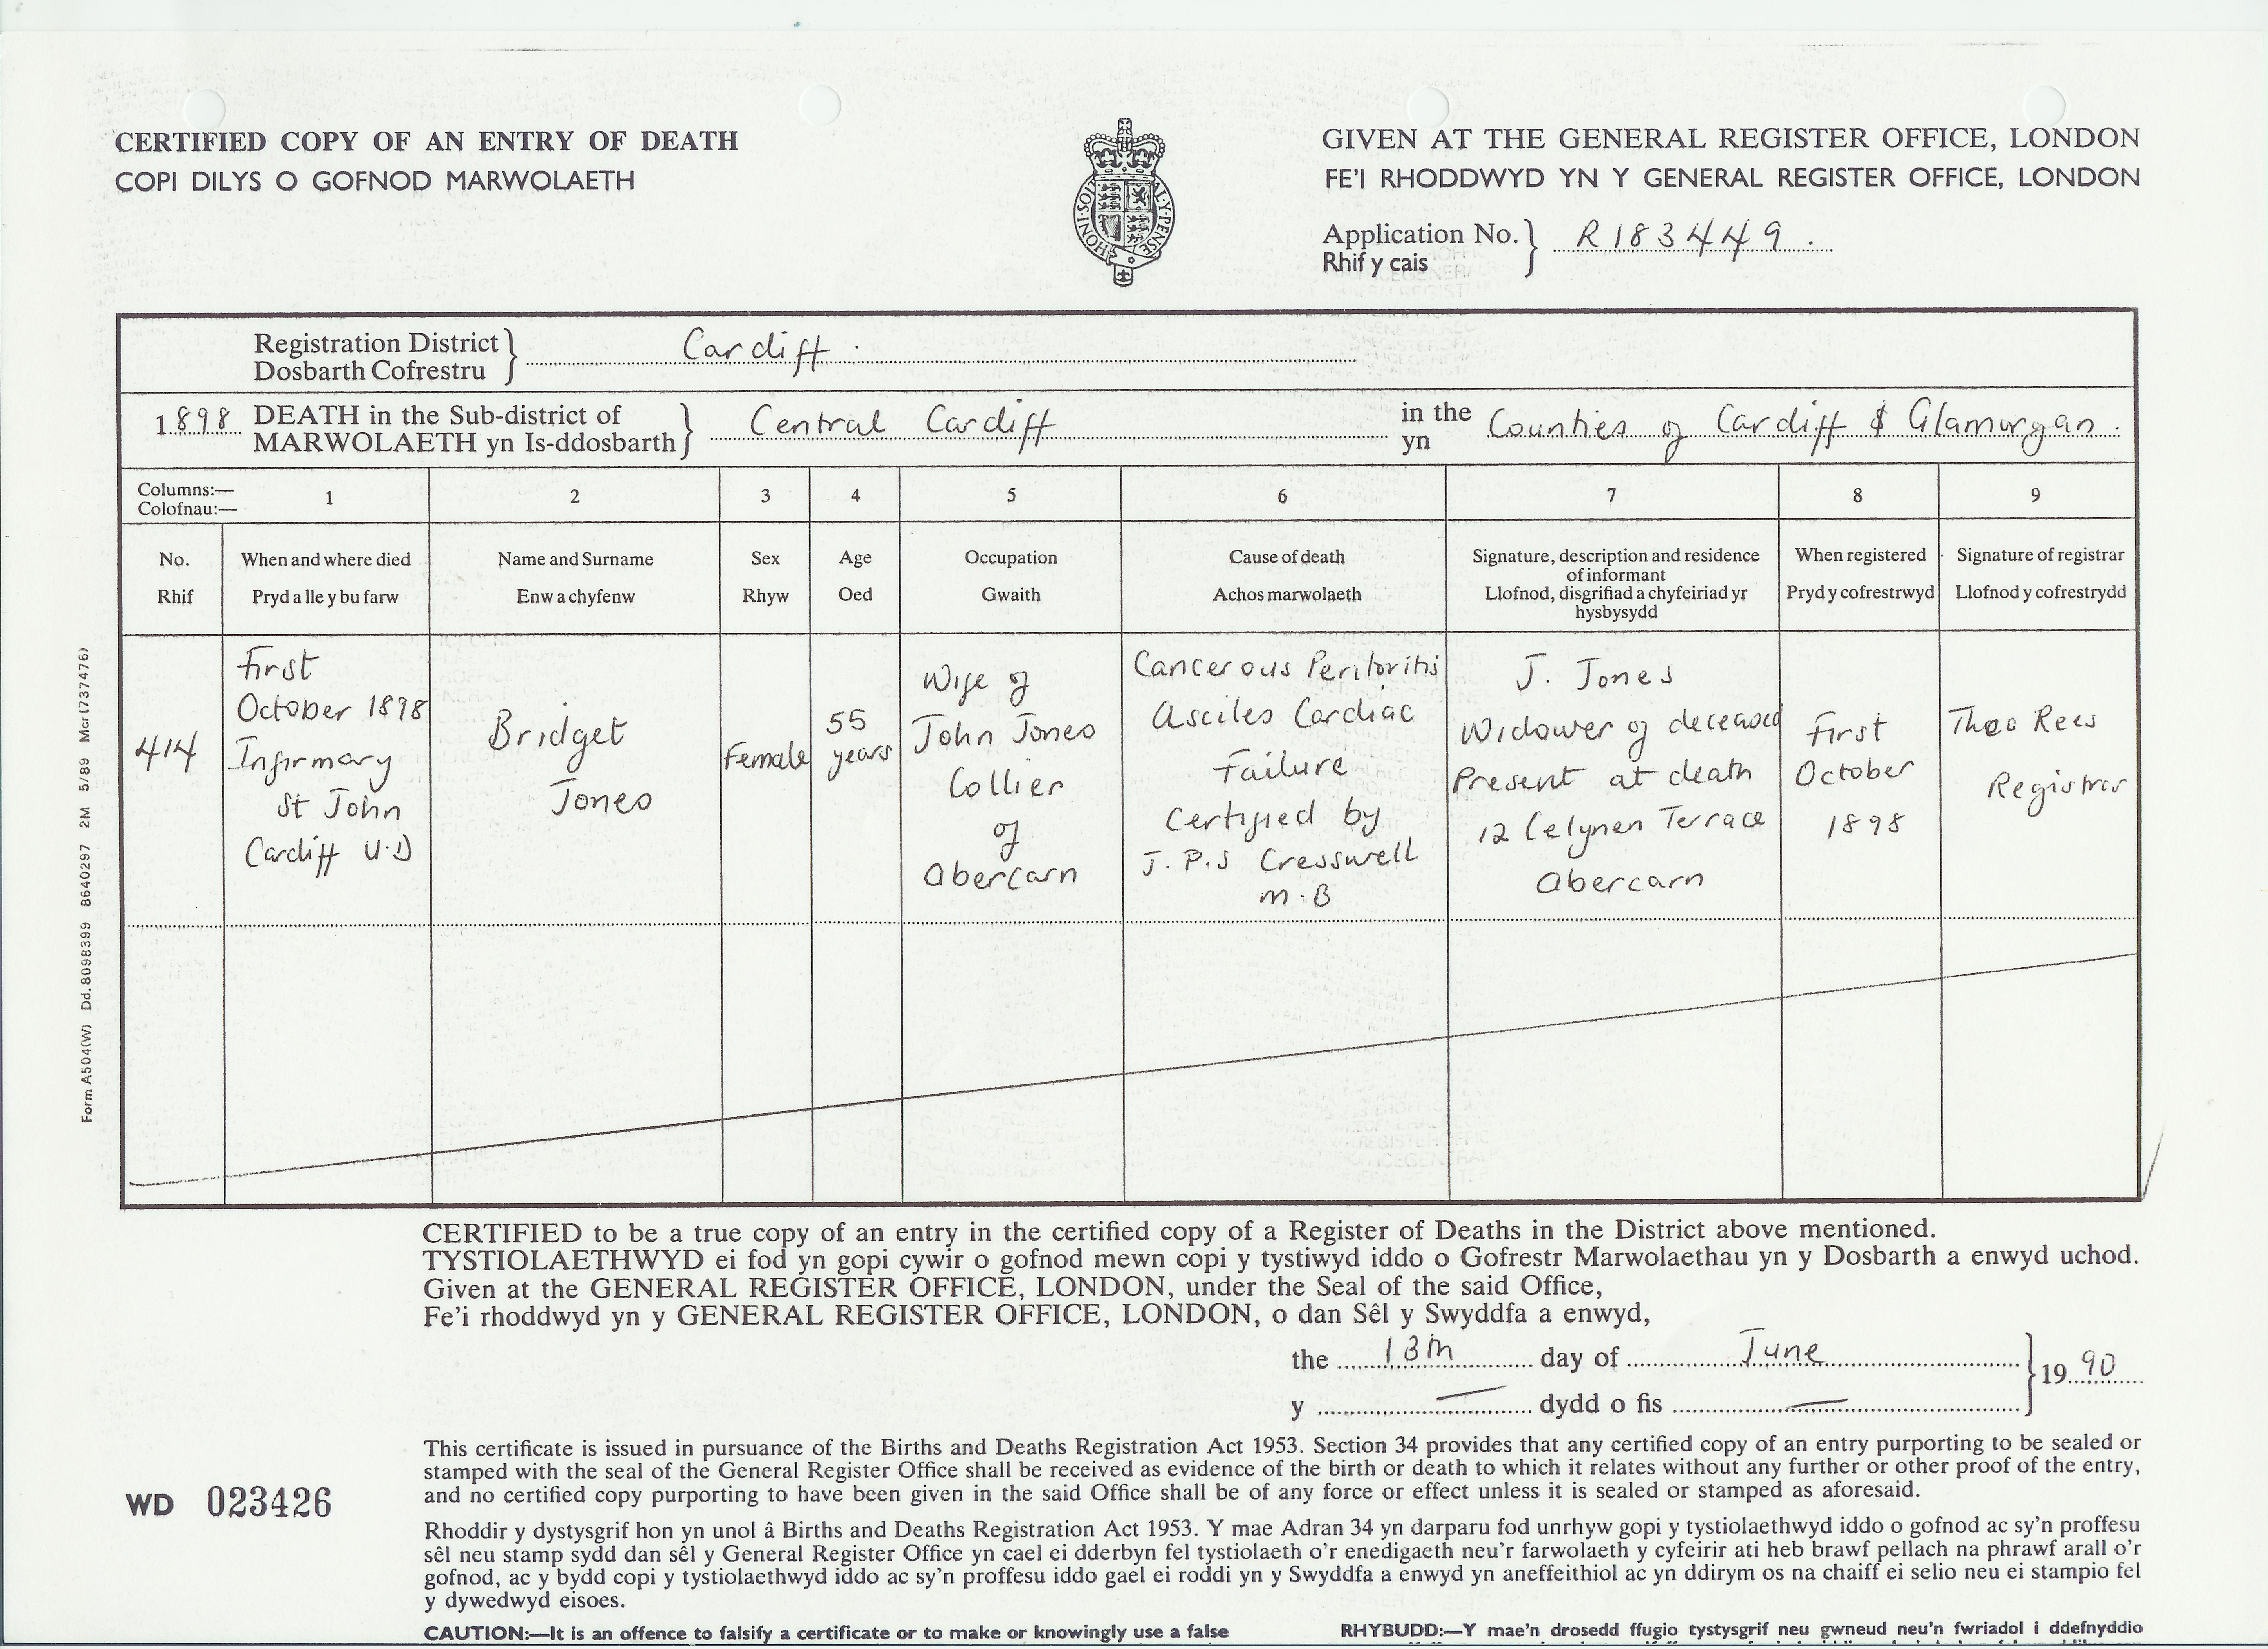 CERTIFIED COPY OF AN ENTRY OF DEATH
COPI DILYS O GOFNOD MARWOLAETH
GIVEN AT THE GENERAL REGISTER OFFICE, LONDON
FE'I RHODDWYD YN Y GENERAL REGISTER OFFICE, LONDON
Application No.} R183449.
Rhif y cais
HONI·SOIT
AL·Y·PENSE
Registration District} Cardiff.
Dosbarth Cofrestru
1898 DEATH in the Sub-district of} Central Cardiff in the Counties of Cardiff & Glamorgan.
MARWOLAETH yn Is-ddosbarth yn
Columns:— 1 2 3 4 5 6 7 8 9
Colofnau:—
No.
Rhif
When and where died
Pryd a lle y bu farw
Name and Surname
Enw a chyfenw
Sex
Rhyw
Age
Oed
Occupation
Gwaith
Cause of death
Achos marwolaeth
Signature, description and residence
of informant
Llofnod, disgrifiad a chyfeiriad yr
hysbysydd
When registered
Pryd y cofrestrwyd
Signature of registrar
Llofnod y cofrestrydd
414
First
October 1898
Infirmary
St John
Cardiff U.D
Bridget
Jones
Female
55
years
Wife of
John Jones
Collier
of
Abercarn
Cancerous Peritoritis
Asciles Cardiac
Failure
Certified by
J.P.S Cresswell
M.B
J. Jones
Widower of deceased
Present at death
12 Celynen Terrace
Abercarn
First
October
1898
Theo Rees
Registrar
Form A504(W) Dd.8098399 8640297 2M 5/89 Mcr(737476)
CERTIFIED to be a true copy of an entry in the certified copy of a Register of Deaths in the District above mentioned.
TYSTIOLAETHWYD ei fod yn gopi cywir o gofnod mewn copi y tystiwyd iddo o Gofrestr Marwolaethau yn y Dosbarth a enwyd uchod.
Given at the GENERAL REGISTER OFFICE, LONDON, under the Seal of the said Office,
Fe'i rhoddwyd yn y GENERAL REGISTER OFFICE, LONDON, o dan Sêl y Swyddfa a enwyd,
the 13th day of June } 19 90
y — dydd o fis —
WD 023426
This certificate is issued in pursuance of the Births and Deaths Registration Act 1953. Section 34 provides that any certified copy of an entry purporting to be sealed or
stamped with the seal of the General Register Office shall be received as evidence of the birth or death to which it relates without any further or other proof of the entry,
and no certified copy purporting to have been given in the said Office shall be of any force or effect unless it is sealed or stamped as aforesaid.
Rhoddir y dystysgrif hon yn unol â Births and Deaths Registration Act 1953. Y mae Adran 34 yn darparu fod unrhyw gopi y tystiolaethwyd iddo o gofnod ac sy'n proffesu
sêl neu stamp sydd dan sêl y General Register Office yn cael ei dderbyn fel tystiolaeth o'r enedigaeth neu'r farwolaeth y cyfeirir ati heb brawf pellach na phrawf arall o'r
gofnod, ac y bydd copi y tystiolaethwyd iddo ac sy'n proffesu iddo gael ei roddi yn y Swyddfa a enwyd yn aneffeithiol ac yn ddirym os na chaiff ei selio neu ei stampio fel
y dywedwyd eisoes.
CAUTION:—It is an offence to falsify a certificate or to make or knowingly use a false
RHYBUDD:—Y mae'n drosedd ffugio tystysgrif neu gwneud neu'n fwriadol i ddefnyddio